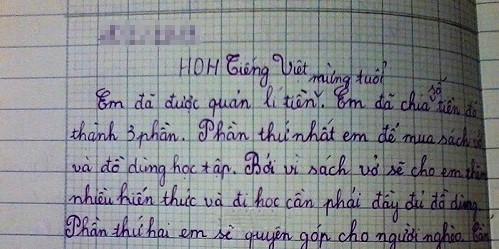 HĐH Tiếng Việt mừng tuổi
Em đã được quản lí tiền. Em đã chia số tiền đó
thành 3 phần. Phần thứ nhất em để mua sách vở
và đồ dùng học tập. Bởi vì sách vở sẽ cho em thêm
nhiều kiến thức và đi học cần phải đầy đủ đồ dùng.
Phần thứ hai em sẽ quyên góp cho người nghèo.